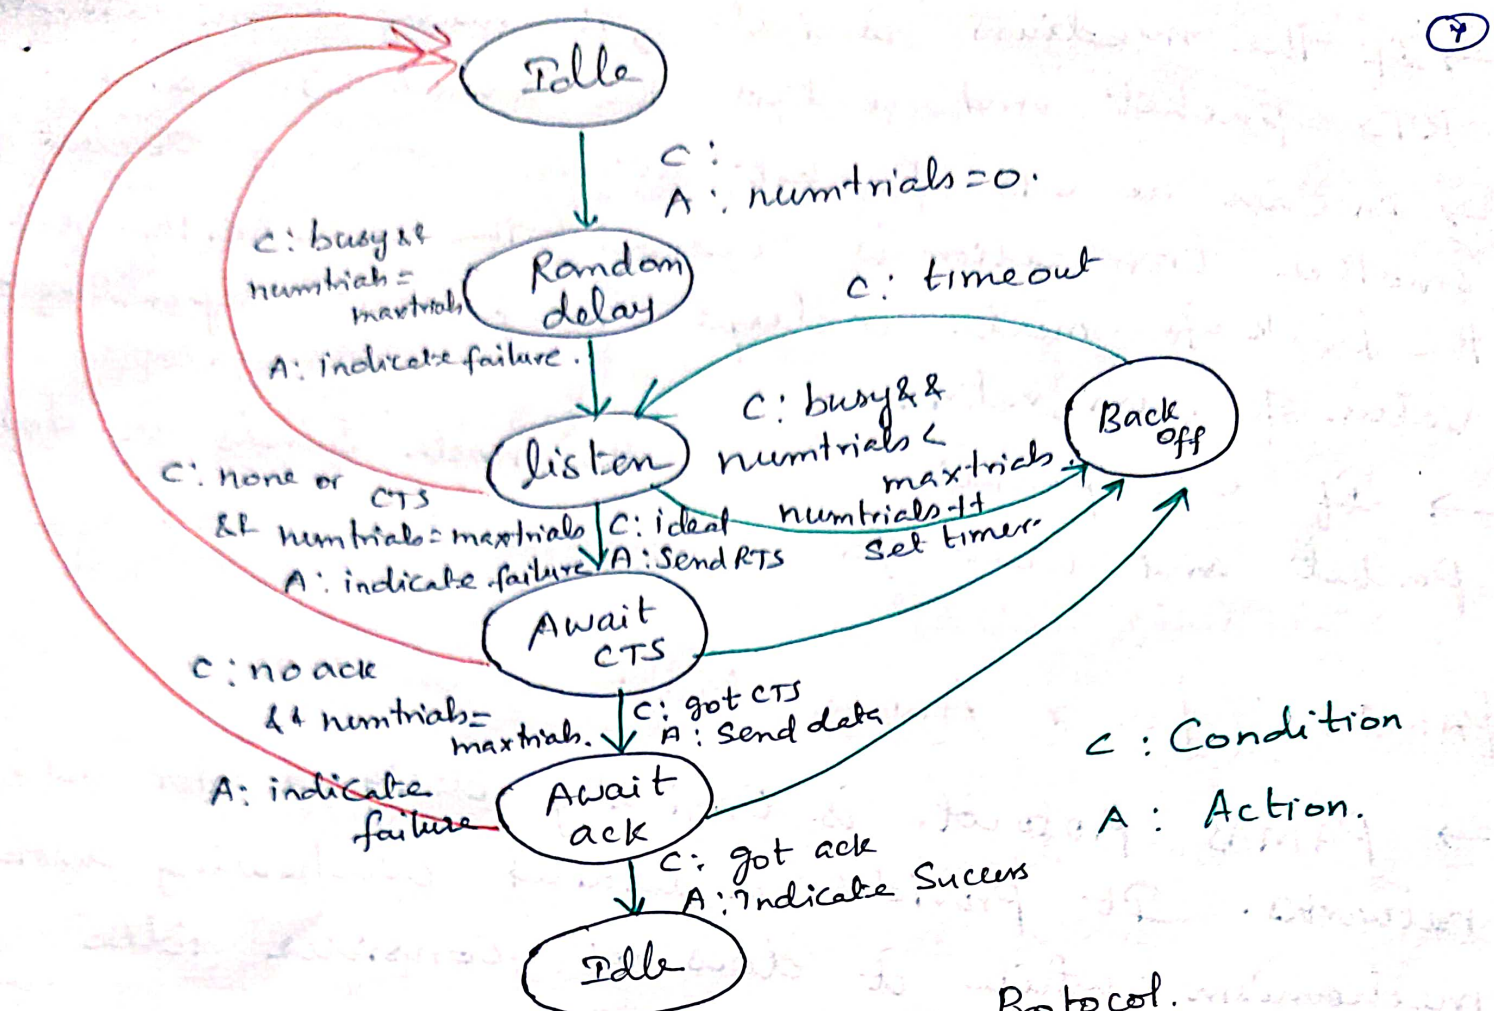 Idle
C :
A : numtrials = 0.
C : busy &&
numtrials =
maxtrials
A : indicate failure.
Random
delay
C : timeout
listen
C : busy &&
numtrials <
maxtrials.
numtrials ++
Set timer.
Back
off
C : none or
CTS
&& numtrials = maxtrials
A : indicate failure
C : ideal
A : Send RTS
Await
CTS
C : no ack
&& numtrials =
maxtrials.
A : indicate
failure
C : got CTS
A : Send data
Await
ack
C : Condition
A : Action.
C : got ack
A : Indicate Success
Idle
Protocol.